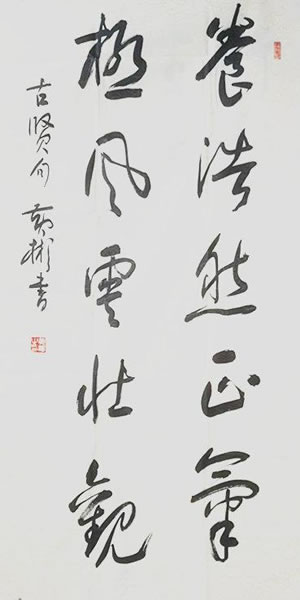 養浩然正氣
極風雲壯觀
古賢句 郭彬書